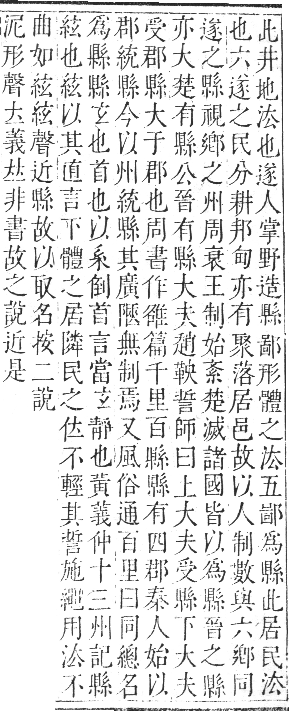 此井地㳒也遂人掌野造縣鄙形體之㳒五鄙爲縣此居民㳒
也六遂之民分耕邦甸亦有聚落居邑故以人制數與六鄉同
遂之縣視鄉之州周衰王制始紊楚滅諸國皆以爲縣晉之縣
亦大楚有縣公晉有縣大夫趙鞅誓師曰上大夫受縣下大夫
受郡縣大于郡也周書作雒篇千里百縣縣有四郡秦人始以
郡統縣今以州統縣其廣陿無制焉又風俗通百里曰同總名
爲縣縣玄也首也从系倒首言當玄靜也黃義仲十三州記縣
絃也絃以其直言下體之居隣民之位不輕其誓施繩用㳒不
曲如絃絃聲近縣故以取名按二說
泥形聲去義𠀤非書故之說近是